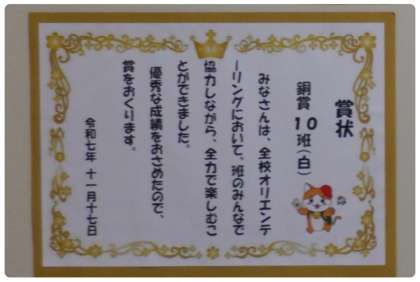 賞状
銅賞 10班(白)
みなさんは、全校オリエンテ
ーリングにおいて、班のみんなで
協力しながら、全力で楽しむこ
とができました。
優秀な成績をおさめたので、
賞をおくります。
令和七年 十一月十七日